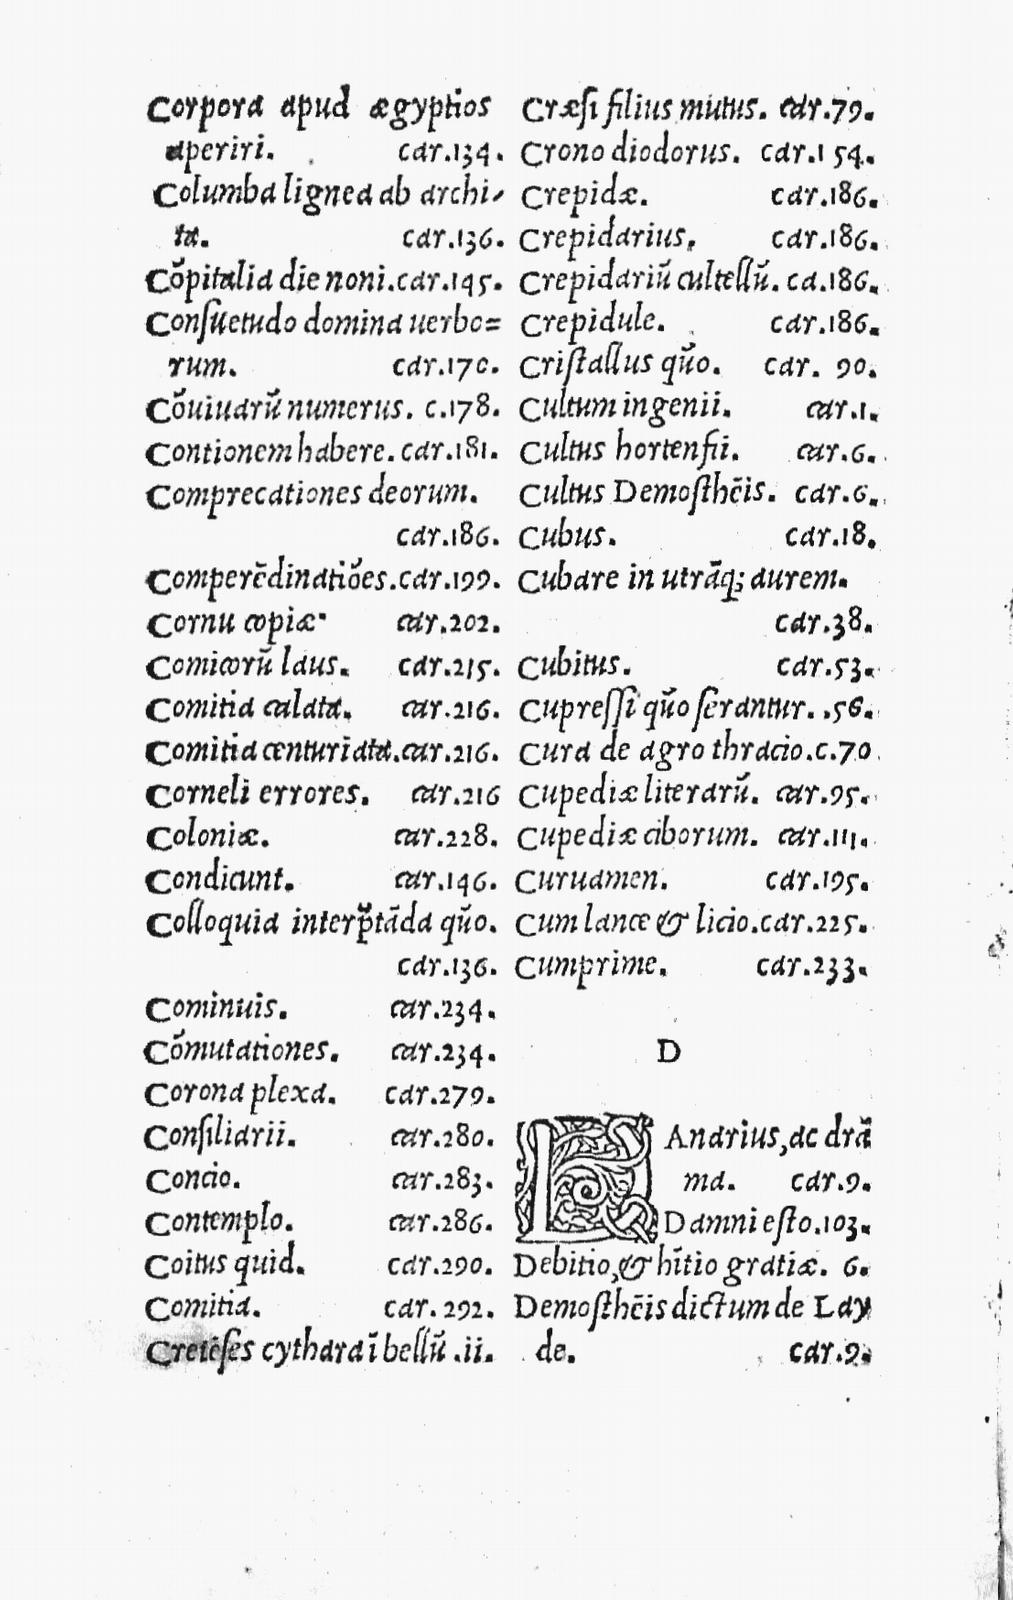 Corpora apud ægyptios
aperiri. car.134.
Columba lignea ab archi-
ta. car.136.
Cōpitalia die noni.car.145.
Conſuetudo domina uerbo=
rum. car.170.
Cōuiuarū numerus. c.178.
Contionem habere.car.181.
Comprecationes deorum.
car.186.
Comperēdinatiōes.car.199.
Cornu copiæ. car.202.
Comicorū laus. car.215.
Comitia calata. car.216.
Comitia centuriata.car.216.
Corneli errores. car.216
Coloniæ. car.228.
Condicunt. car.146.
Colloquia interp̄tāda quō.
car.136.
Cominuis. car.234.
Cōmutationes. car.234.
Corona plexa. car.279.
Conſiliarii. car.280.
Concio. car.283.
Contemplo. car.286.
Coitus quid. car.290.
Comitia. car.292.
Cretēſes cythara ī bellū .ii.
Cræſi filius mutus. car.79.
Crono diodorus. car.154.
Crepidæ. car.186.
Crepidarius. car.186.
Crepidariū cultellū. ca.186.
Crepidule. car.186.
Criſtallus quō. car. 90.
Cultum ingenii. car.1.
Cultus hortenſii. car.6.
Cultus Demoſthēis. car.6.
Cubus. car.18.
Cubare in utrāq; aurem.
car.38.
Cubitus. car.53.
Cupreſſi quō ſerantur. .56.
Cura de agro thracio.c.70.
Cupediæ literarū. car.95.
Cupediæ ciborum. car.111.
Curuamen. car.195.
Cum lance & licio.car.225.
Cumprime. car.233.
D
Andrius,ac drā
ma. car.9.
Damni eſto.103.
Debitio,& hītio gratiæ. 6.
Demoſthēis dictum de Lay
de. car.9.